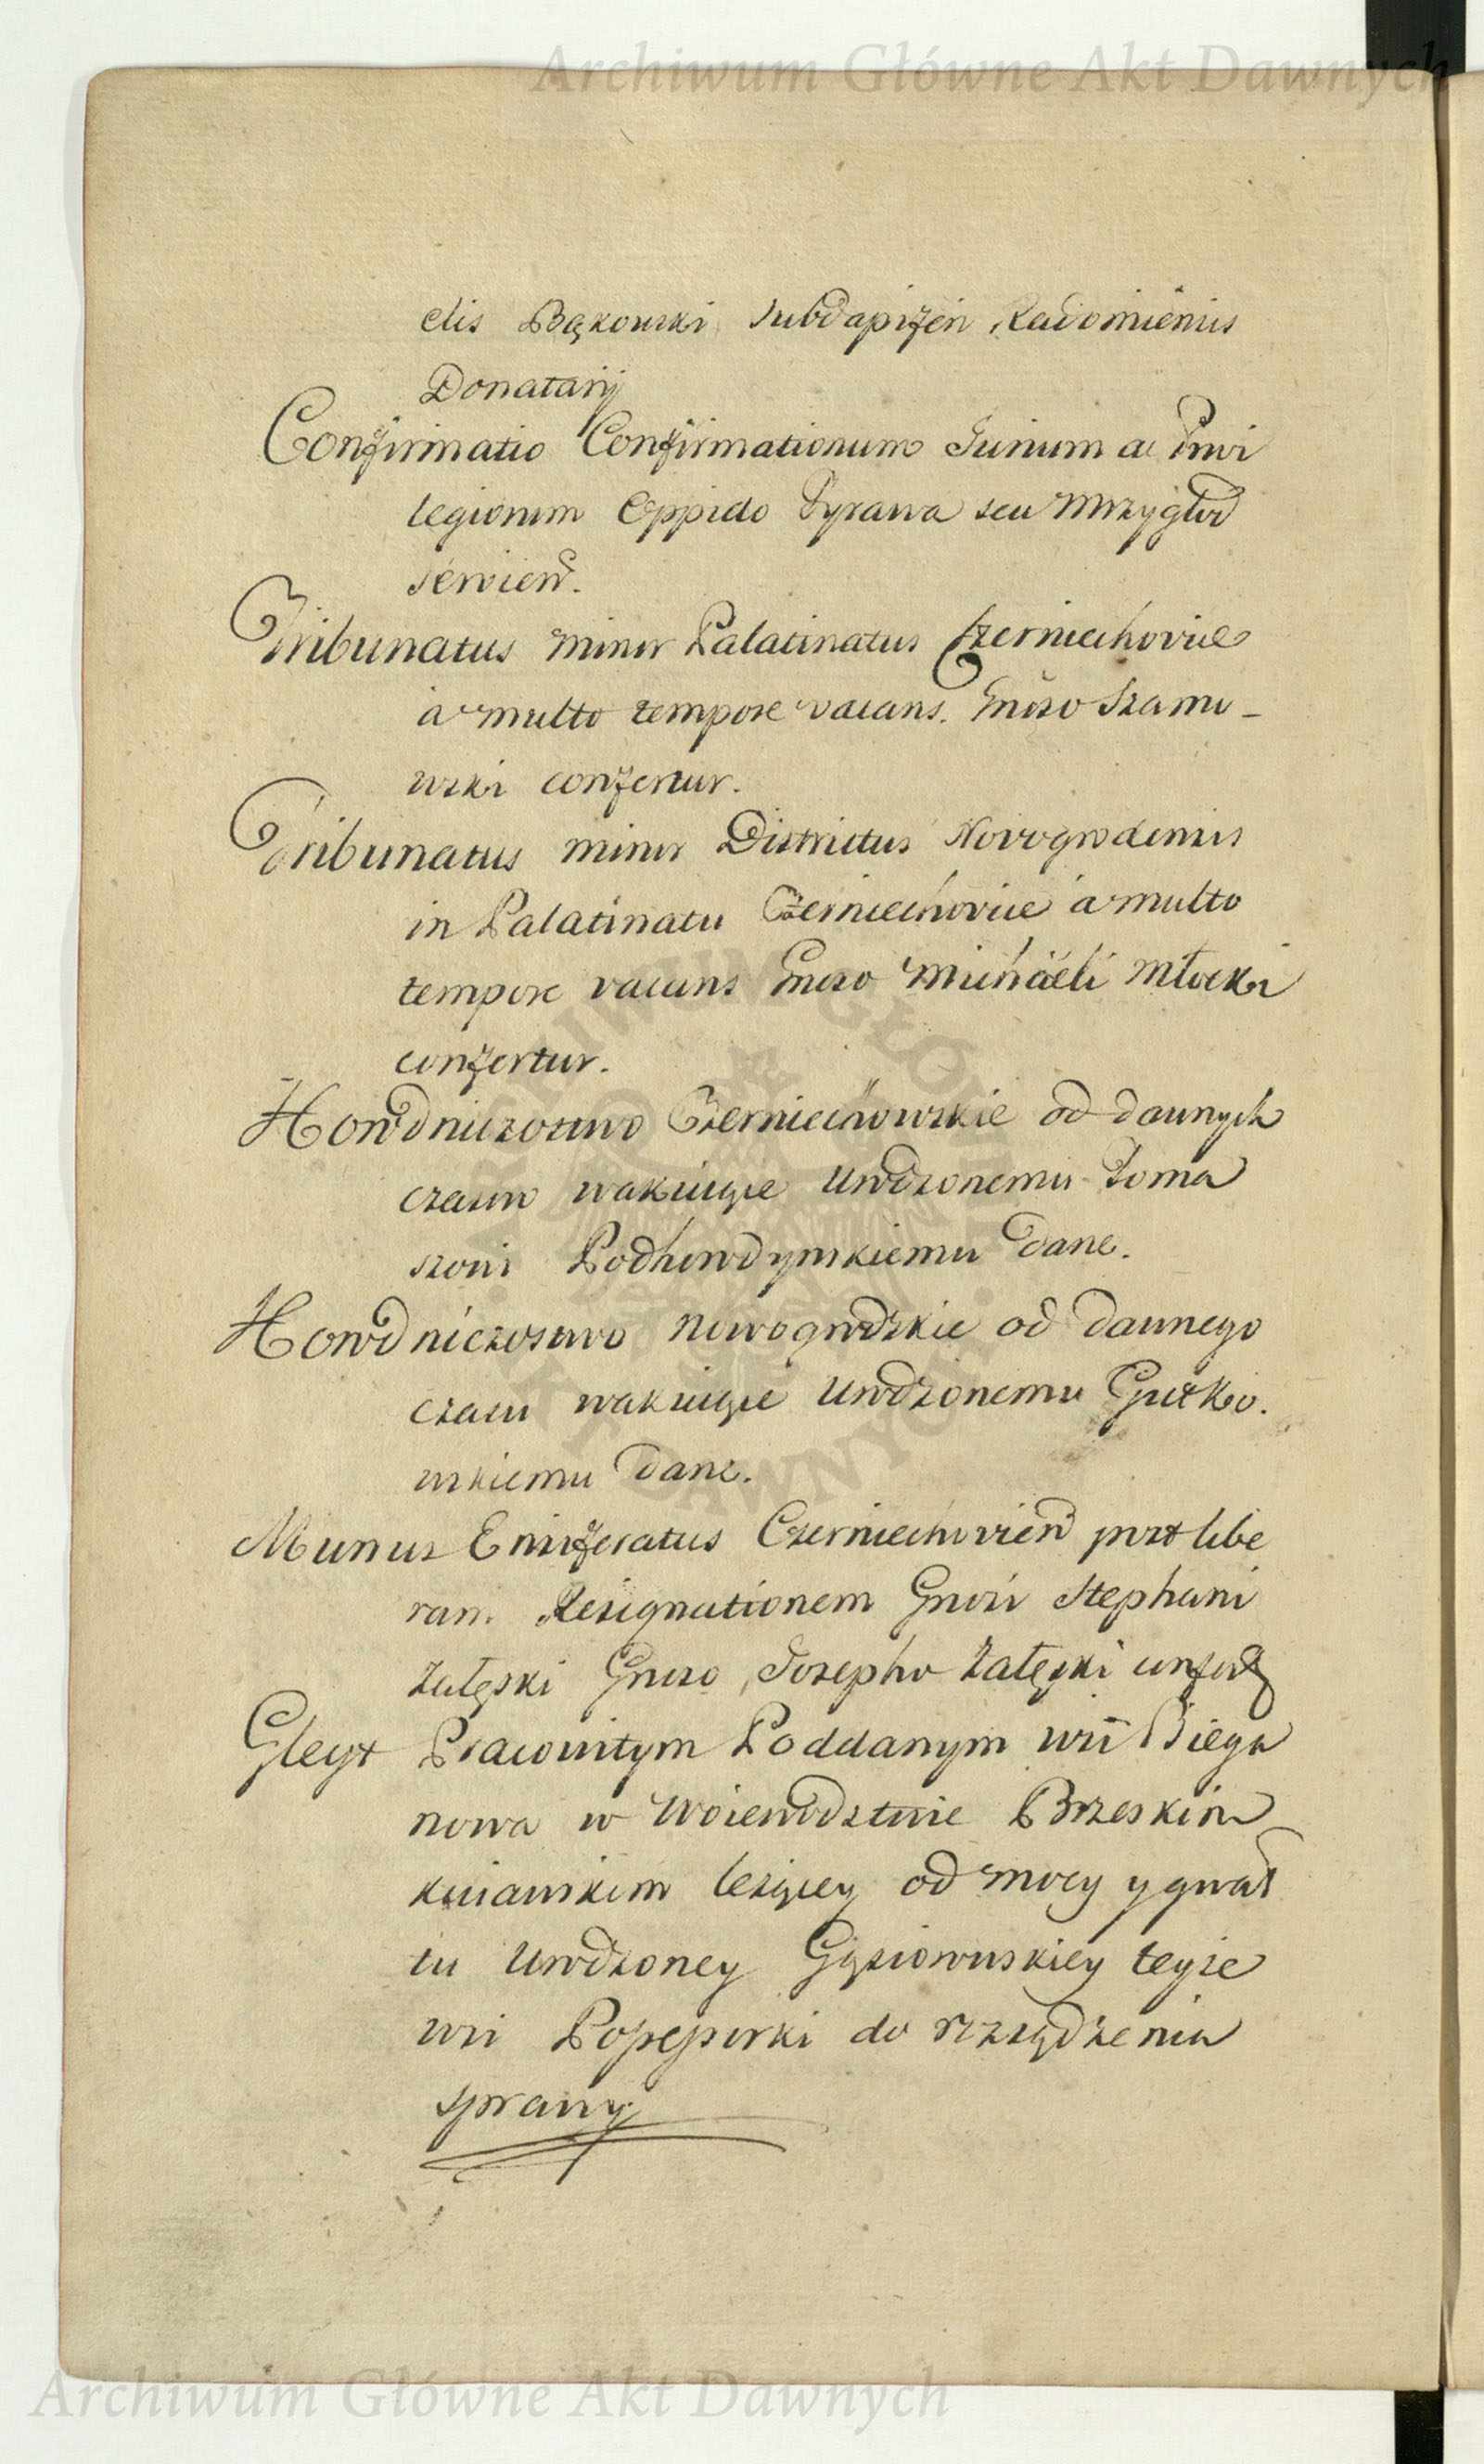 Archiwum Główne Akt Dawnych
elis Bąkowski Subdapiferi Radomiensis
Donatarij
Confirmatio Confirmationum Jurium ac Privi
legiorum Oppido Tyrawa seu Mrzygłod
servien.
Tribunatus minor Palatinatus Czerniechoviae
a multo tempore vacans. Gnoso Szamo-
wski confertur.
Tribunatus minor Districtus Novogrodensis
in Palatinatu Czerniechoviae a multo
tempore vacans Gnoso Michaëli Młocki
confertur.
Horodniczostwo Czerniechowskie od dawnych
czasow wakuiące Urodzonemu Toma
szowi Podhorodynskiemu dane.
Horodniczostwo Nowogrodzkie od dawnego
czasu wakuiące Urodzonemu Gutko.
wskiemu dane.
Munus Ensiferatus Czerniechovien post libe
ram Resignationem Gnosi Stephani
Załęski Gnoso Josepho Załęski confert
Gleyt Pracowitym Poddanym wsi Biega
nowa w Woiewodztwie Brzeskim
kuiawskim leżącey od mocy y gwał
tu Urodzoney Gąsiorowskiey teyże
wsi Possessorki do rozsądzenia
sprawy
Archiwum Główne Akt Dawnych